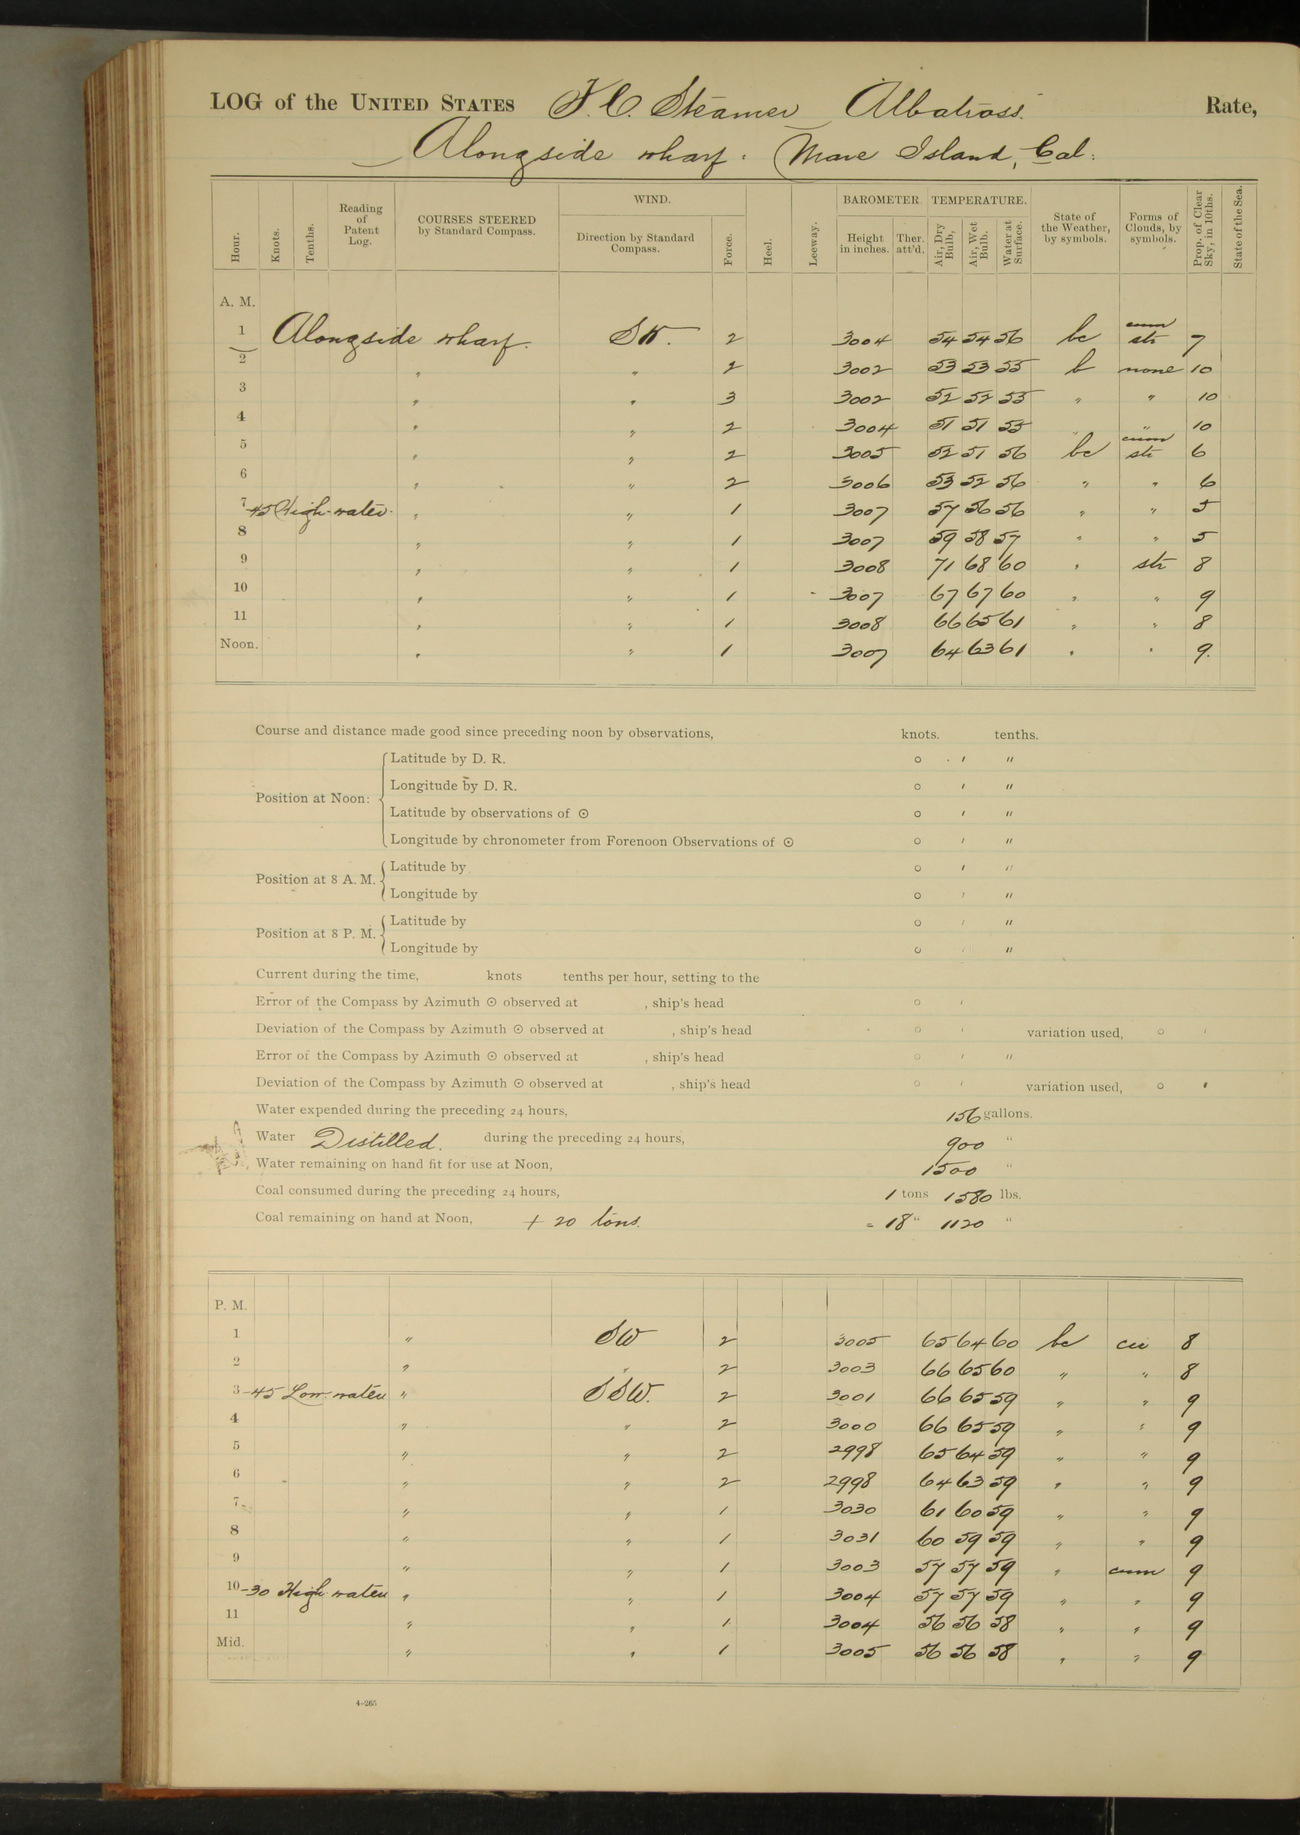 LOG of the UNITED STATES F. C. Steamer Albatross. Rate,
Alongside wharf. Mare Island, Cal.
Hour. Knots. Tenths. Reading of Patent Log. COURSES STEERED by Standard Compass. WIND. Direction by Standard Compass. Force. Heel. Leeway. BAROMETER. Height in inches. Ther. att'd. TEMPERATURE. Air, Dry Bulb, Air, Wet Bulb. Water at Surface. State of the Weather, by symbols. Forms of Clouds, by symbols. Prop. of Clear Sky, in 10ths. State of the Sea.
A. M.
1 Alongside wharf. SW. 2 3004 54 54 56 bc cum str 7
2 " " 2 3002 53 53 55 b none 10
3 " " 3 3002 52 52 55 " " 10
4 " " 2 3004 51 51 55 " " 10
5 " " 2 3005 52 51 56 bc cum str 6
6 " " 2 3006 53 52 56 " " 6
7 45 High water. " " 1 3007 57 56 56 " " 5
8 " " 1 3007 59 58 57 " " 5
9 " " 1 3008 71 68 60 " str 8
10 " " 1 3007 67 67 60 " " 9
11 " " 1 3008 66 65 61 " " 8
Noon. " " 1 3007 64 63 61 " " 9.
Course and distance made good since preceding noon by observations, knots. tenths.
Position at Noon: Latitude by D. R. ° ' "
Longitude by D. R. ° ' "
Latitude by observations of ⊙ ° ' "
Longitude by chronometer from Forenoon Observations of ⊙ ° ' "
Position at 8 A. M. Latitude by ° ' "
Longitude by ° ' "
Position at 8 P. M. Latitude by ° ' "
Longitude by ° ' "
Current during the time, knots tenths per hour, setting to the
Error of the Compass by Azimuth ⊙ observed at , ship's head ° '
Deviation of the Compass by Azimuth ⊙ observed at , ship's head ° ' variation used, ° '
Error of the Compass by Azimuth ⊙ observed at , ship's head ° ' "
Deviation of the Compass by Azimuth ⊙ observed at , ship's head ° ' variation used, ° '
Water expended during the preceding 24 hours, 156 gallons.
Water Distilled. during the preceding 24 hours, 900 "
Water remaining on hand fit for use at Noon, 1500 "
Coal consumed during the preceding 24 hours, 1 tons 1580 lbs.
Coal remaining on hand at Noon, + 20 tons. = 18 " 1120 "
P. M.
1 " SW 2 3005 65 64 60 bc cu 8
2 " " 2 3003 66 65 60 " " 8
3 -45 Low water " SSW. 2 3001 66 65 59 " " 9
4 " " 2 3000 66 65 59 " " 9
5 " " 2 2998 65 64 59 " " 9
6 " " 2 2998 64 63 59 " " 9
7 " " 1 3030 61 60 59 " " 9
8 " " 1 3031 60 59 59 " " 9
9 " " 1 3003 57 57 59 " cum 9
10 -30 High water " " 1 3004 57 57 59 " " 9
11 " " 1 3004 56 56 58 " " 9
Mid. " " 1 3005 56 56 58 " " 9
4-265